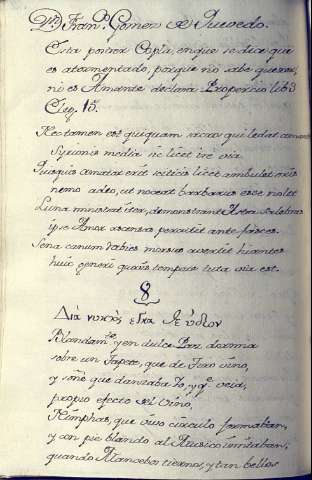 Dⁿ Franᶜᵒ Gomez de Quevedo.
Esta postrer Copla, en que se dice que
es atormentado, porque no sabe querer,
ni es Amante declara Propercio lib 3
Eleg. 15.
Nec tamen est quisquam sacros qui ledat amantes
Scyronis media sic licet ire via
Quisquis amator erit scithicis licet ambulet oris
nemo adeo, ut noceat barbarus esse volet
Luna ministrat iter, demonstrant Astra salebras
ipse Amor accensas percutit ante faces.
Seva canum rabies morsus avertit hiantes
huic generi quovis tempore tuta via est.
8
Διὰ νυκτὸς
Blandamᵗᵉ, y en dulce Paz dormia
sobre un Tapete, que de Tiro vino,
y soñe que danzaba Yo, y qᵉ veia,
propio efecto del vino,
Nimphas, que en su circulo formaban,
y con pie blando al Musico imitaban,
quando Mancebos tiernos, y tan bellos